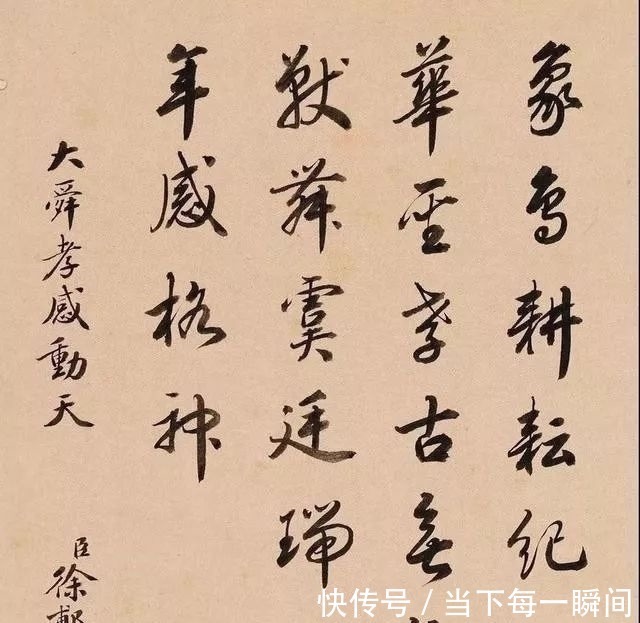 象鳥耕耘紀
華聖孝古無
獸舞虞廷瑞
年感格神
大舜孝感動天
臣徐
快传号 / 当下每一瞬间